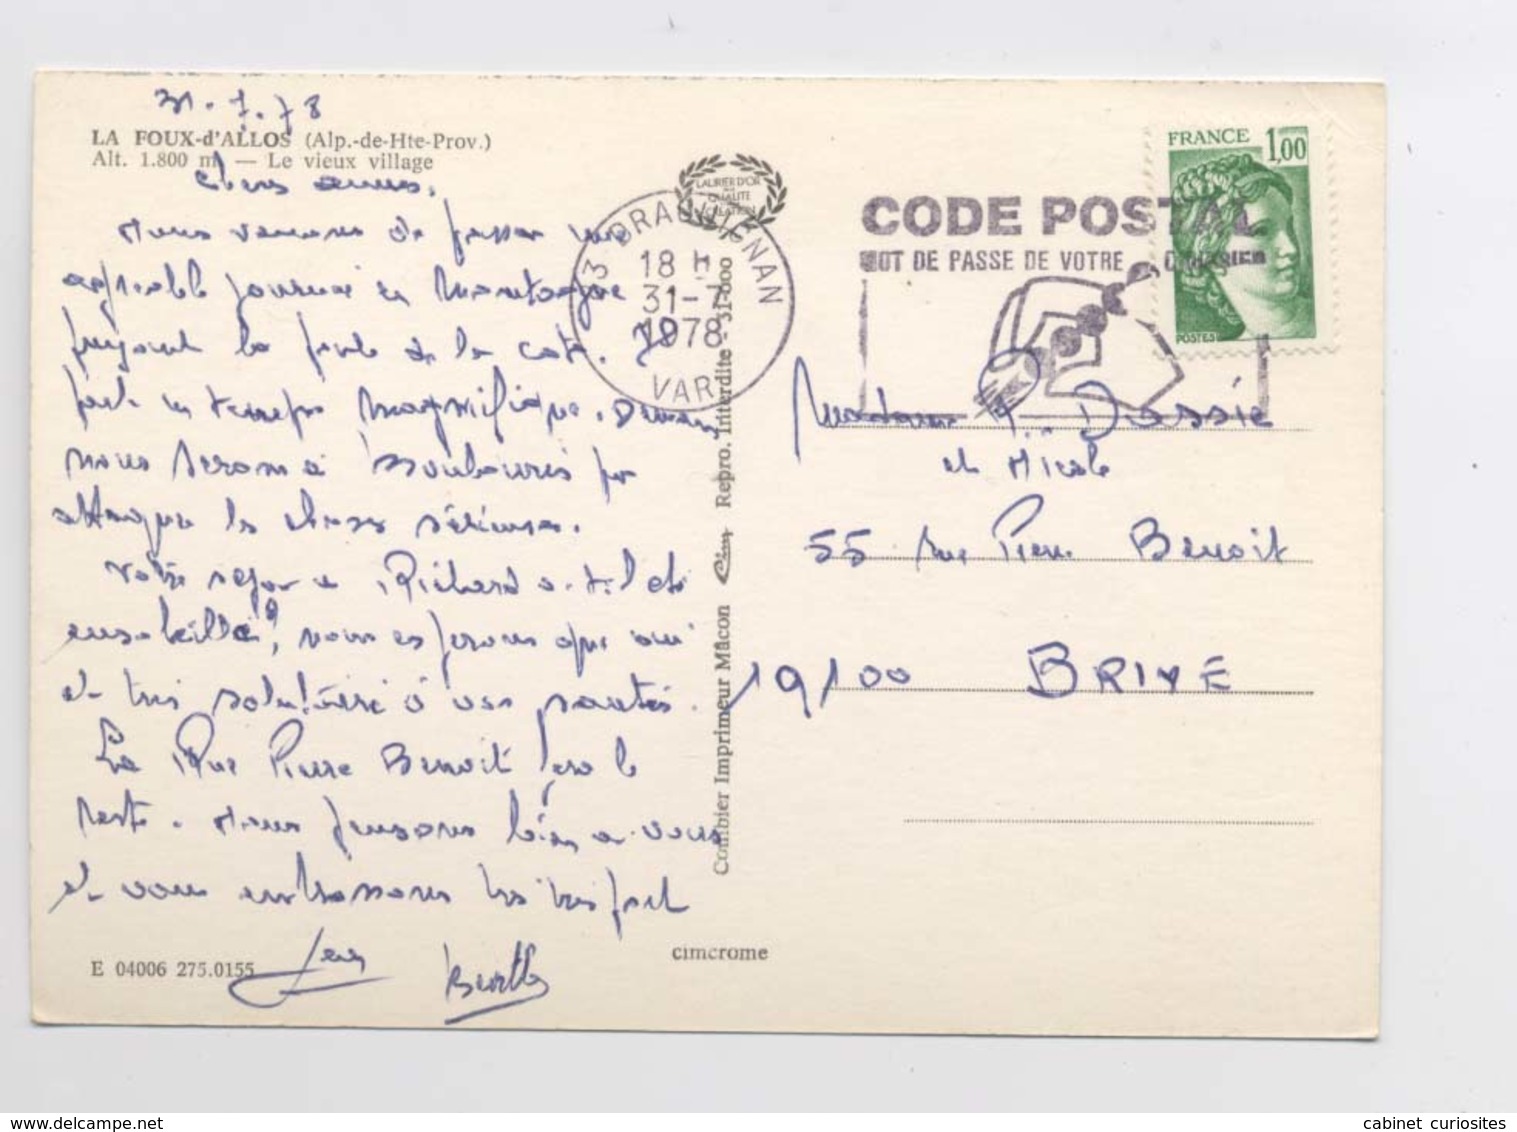 31.7.78
LA FOUX-d'ALLOS (Alp.-de-Hte-Prov.)
Alt. 1.800 m — Le vieux village
Chers amis,
Nous venons de passer une
agréable journée en Montagne
fuyant la foule de la cote. Il
fait un temps magnifique. Demain
nous serons à par
attaque les choses sérieuses.
Votre séjour à Richard a-t-il été
ensoleillé?, nous espérons que oui
et très salutaire à vos santés.
La Rue Pierre Benoit fera le
reste. Nous pensons bien a vous
et vous embrassons très très fort
Jean Berthe
E 04006 275.0155
cimcrome
Combier Imprimeur Mâcon Cim Repro. Interdite - 31-000
LAURIER D'OR
DE LA
QUALITE
CREATION
83 DRAGUIGNAN
18 H
31-7
1978
VAR
CODE POSTAL
MOT DE PASSE DE VOTRE COURRIER
FRANCE 1,00
POSTES
Madame P. Dassié
et Nicole
55 rue Pierre Benoit
19100 BRIVE
cabinet curiosites
www.delcampe.net